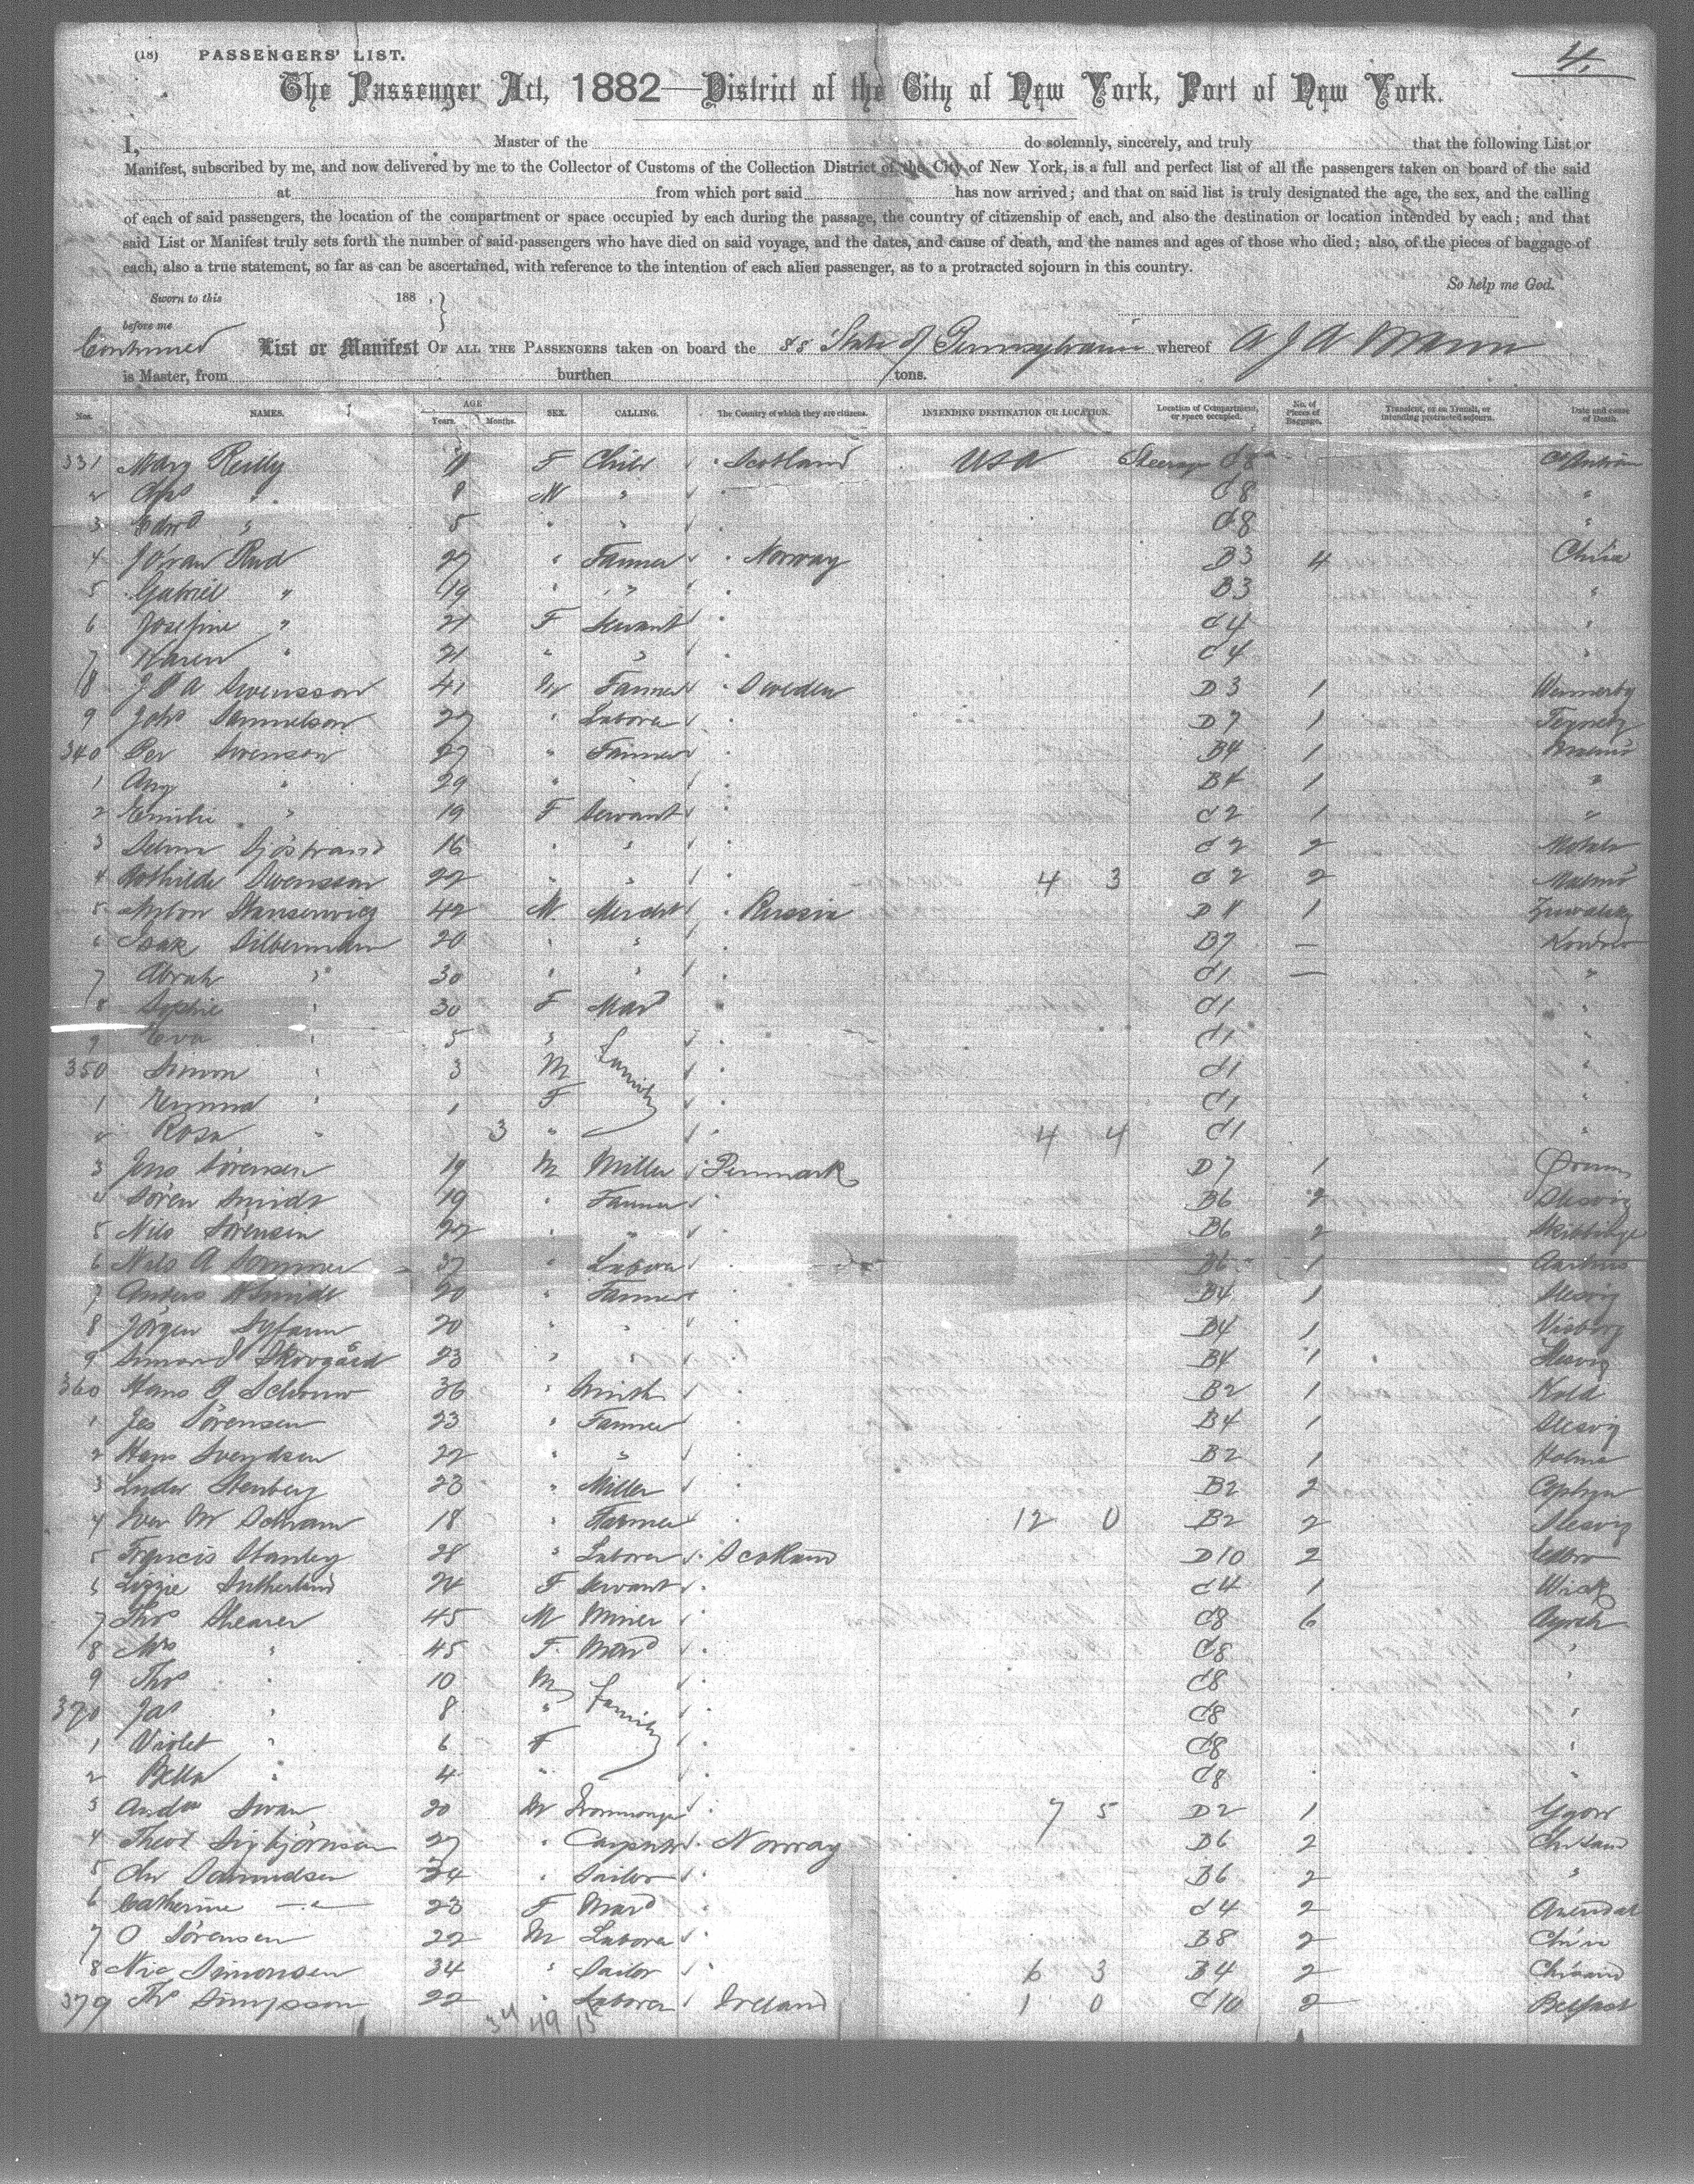 (18) PASSENGERS' LIST. 4.
The Passenger Act, 1882—District of the City of New York, Port of New York.
I, Master of the do solemnly, sincerely, and truly that the following List or
Manifest, subscribed by me, and now delivered by me to the Collector of Customs of the Collection District of the City of New York, is a full and perfect list of all the passengers taken on board of the said
at from which port said has now arrived; and that on said list is truly designated the age, the sex, and the calling
of each of said passengers, the location of the compartment or space occupied by each during the passage, the country of citizenship of each, and also the destination or location intended by each; and that
said List or Manifest truly sets forth the number of said passengers who have died on said voyage, and the dates, and cause of death, and the names and ages of those who died; also, of the pieces of baggage of
each, also a true statement, so far as can be ascertained, with reference to the intention of each alien passenger, as to a protracted sojourn in this country.
So help me God.
Sworn to this 188 , }
before me
Continued List or Manifest OF ALL THE PASSENGERS taken on board the SS State of Pennsylvania whereof A J A Mann
is Master, from burthen tons.
Nos. NAMES. AGE Years. Months. SEX. CALLING. The Country of which they are citizens. INTENDING DESTINATION OR LOCATION. Location of Compartment, or space occupied. No. of Pieces of Baggage. Transient, or in Transit, or intending protracted sojourn. Date and cause of Death.
331 Mary Reilly F Child Scotland USA Steerage C8 Co Antrim
2 Chs " 8 M " C8 "
3 Edwd " 5 " " C8 "
4 Rud 27 " Farmer Norway B3 4 Chria
5 Gabriel " 19 " " B3 "
6 Josefine " 21 F Servant C4 "
7 Karen " 21 " " C4 "
8 J P A Swensson 41 M Farmer Sweden D3 1
9 Johs Samuelson 27 " Laborer D7 1
340 Per Swenson 27 " Farmer B4 1 Malmö
1 Aug " 29 " " B4 1 "
2 Emilie " 19 F Servant C2 1 "
3 Selma Sjöstrand 16 " " C2 2 Motala
4 Bothilde Swensson 22 " " 4 3 C2 2 Malmö
5 42 M Mercht Russia D 1
6 Isak Silbermann 20 " " B7 — Kowno
7 Abrah " 30 " " C1 — "
8 Sophie " 30 F Mard C1 "
9 Eva " 5 " Family C1 "
350 Simon " 3 M C1 "
1 Emma " 1 F C1 "
2 Rosa " 3 " 4 4 C1 "
3 Jens Sörensen 19 M Miller Denmark D7 1
4 Sören Smidt 19 " Farmer B6 2 Slesvig
5 Nils Sörensen 22 " " B6 2
6 Nils A Sommer 37 " Laborer B6 1 Aarhus
7 Anders Smidt 20 " Farmer B4 1 Slesvig
8 Jörgen 20 " " B4 1 Viborg
9 Skovgård 23 " " B4 1 Slesvig
360 Hans P Schouw 36 " Smith B2 1 Kold
1 Jes Sörensen 23 " Farmer B4 1 Slesvig
2 Hans Svendsen 22 " " B2 1
3 Stenberg 23 " Miller B2 2 Cophgn
4 Iver M Schram 18 " Farmer 12 0 B2 2 Slesvig
5 Francis Stanley 28 " Laborer Scotland D10 2 Edbro
6 Lizzie Sutherland 24 F Servant C4 1 Wick
7 Ths Shearer 45 M Miner C8 6
8 Mrs " 45 F Mard C8 "
9 Ths " 10 M Family C8 "
370 Jas " 8 " C8 "
1 Violet " 6 F C8 "
2 Bella " 4 " C8 "
3 Andw Swan 20 M Ironmonger 7 5 D2 1 Ggow
4 Theod Sigbjörnsen 27 " Carpenter Norway B6 2 Chrsand
5 Chr 34 " Sailor B6 2 "
6 Catherine — " — 23 F Mard C4 2 Arendal
7 O Sörensen 22 M Laborer B8 2 Chria
8 Nic Simonsen 34 " Sailor 6 3 B4 2 Chrsand
379 Ths Simpson 22 " Laborer Ireland 1 0 C10 2 Belfast
34 49 15